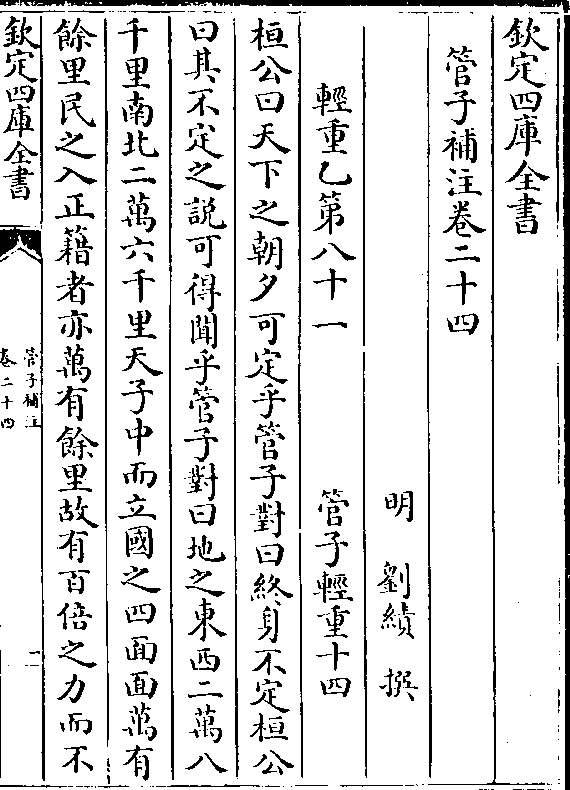 欽定四庫全書
管子補注卷二十四
明 劉績 撰
輕重乙第八十一 管子輕重十四
桓公曰天下之朝夕可定乎管子對曰終身不定桓公
曰其不定之說可得聞乎管子對曰地之東西二萬八
千里南北二萬六千里天子中而立國之四面面萬有
餘里民之入正籍者亦萬有餘里故有百倍之力而不
欽定四庫全書
管子補注
卷二十四
一